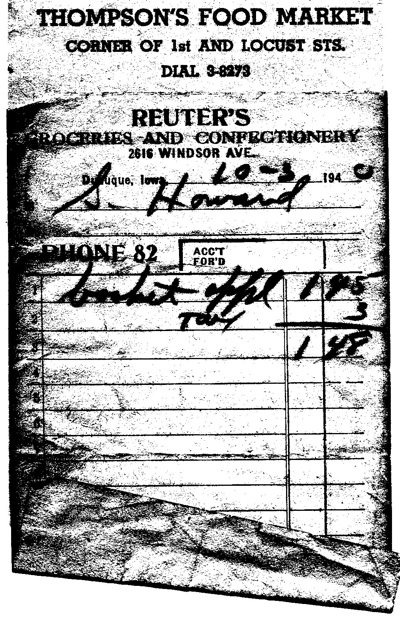 THOMPSON'S FOOD MARKET
CORNER OF 1st AND LOCUST STS.
DIAL 3-8273
REUTER'S
GROCERIES AND CONFECTIONERY
2616 WINDSOR AVE.
Dubuque, Iowa, 10-3 1940
S. Howard
PHONE 82
ACC'T
FOR'D
basket appl 1 45
Tax 3
1 48